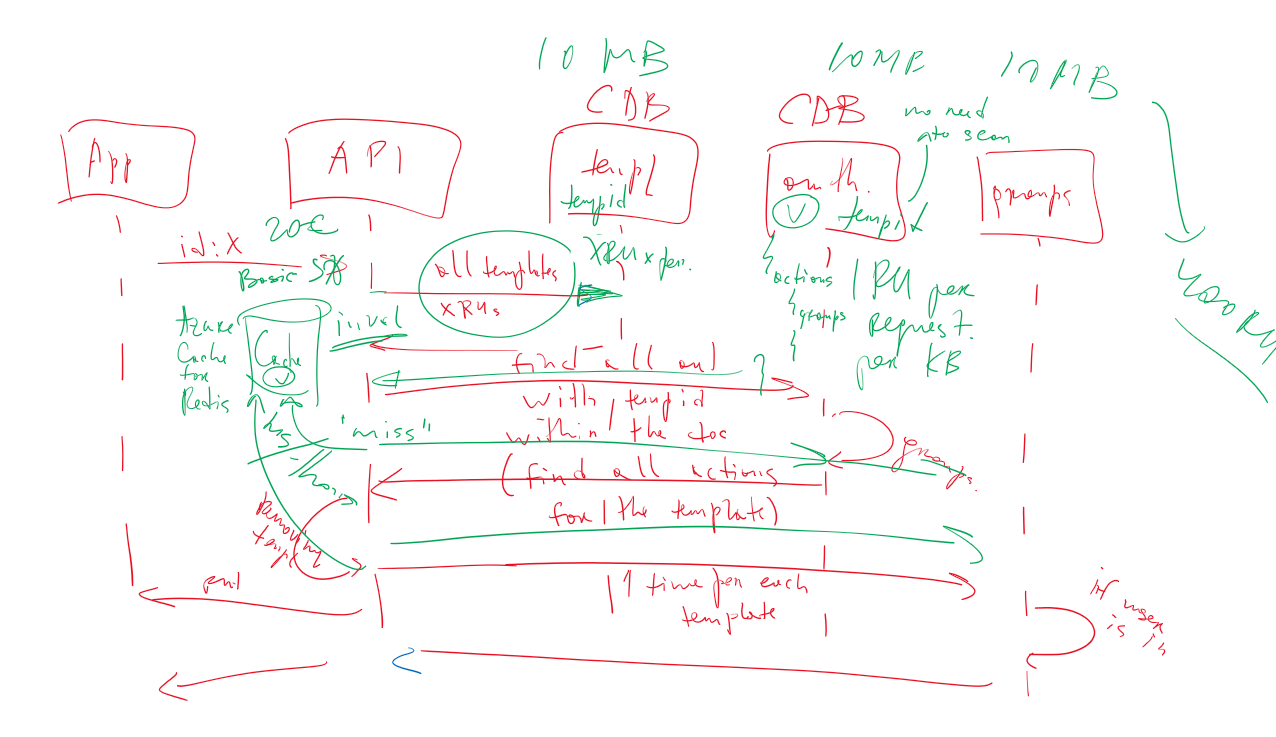 10 MB
10 MB
10 MB
CDB
CDB
no need
to scan
App
API
templ
tempid
auth.
V
tempid
groups
20€
id: X
Basic
all templates
XRUs
XRU x per.
actions
groups
1 RU per
request.
per KB
400 RU
Azure
Cache
for
Redis
Cache
V
inval
find all
with tempid
within the doc
"miss"
(find all actions
for the template)
groups.
1 time per each
template
if user
is in